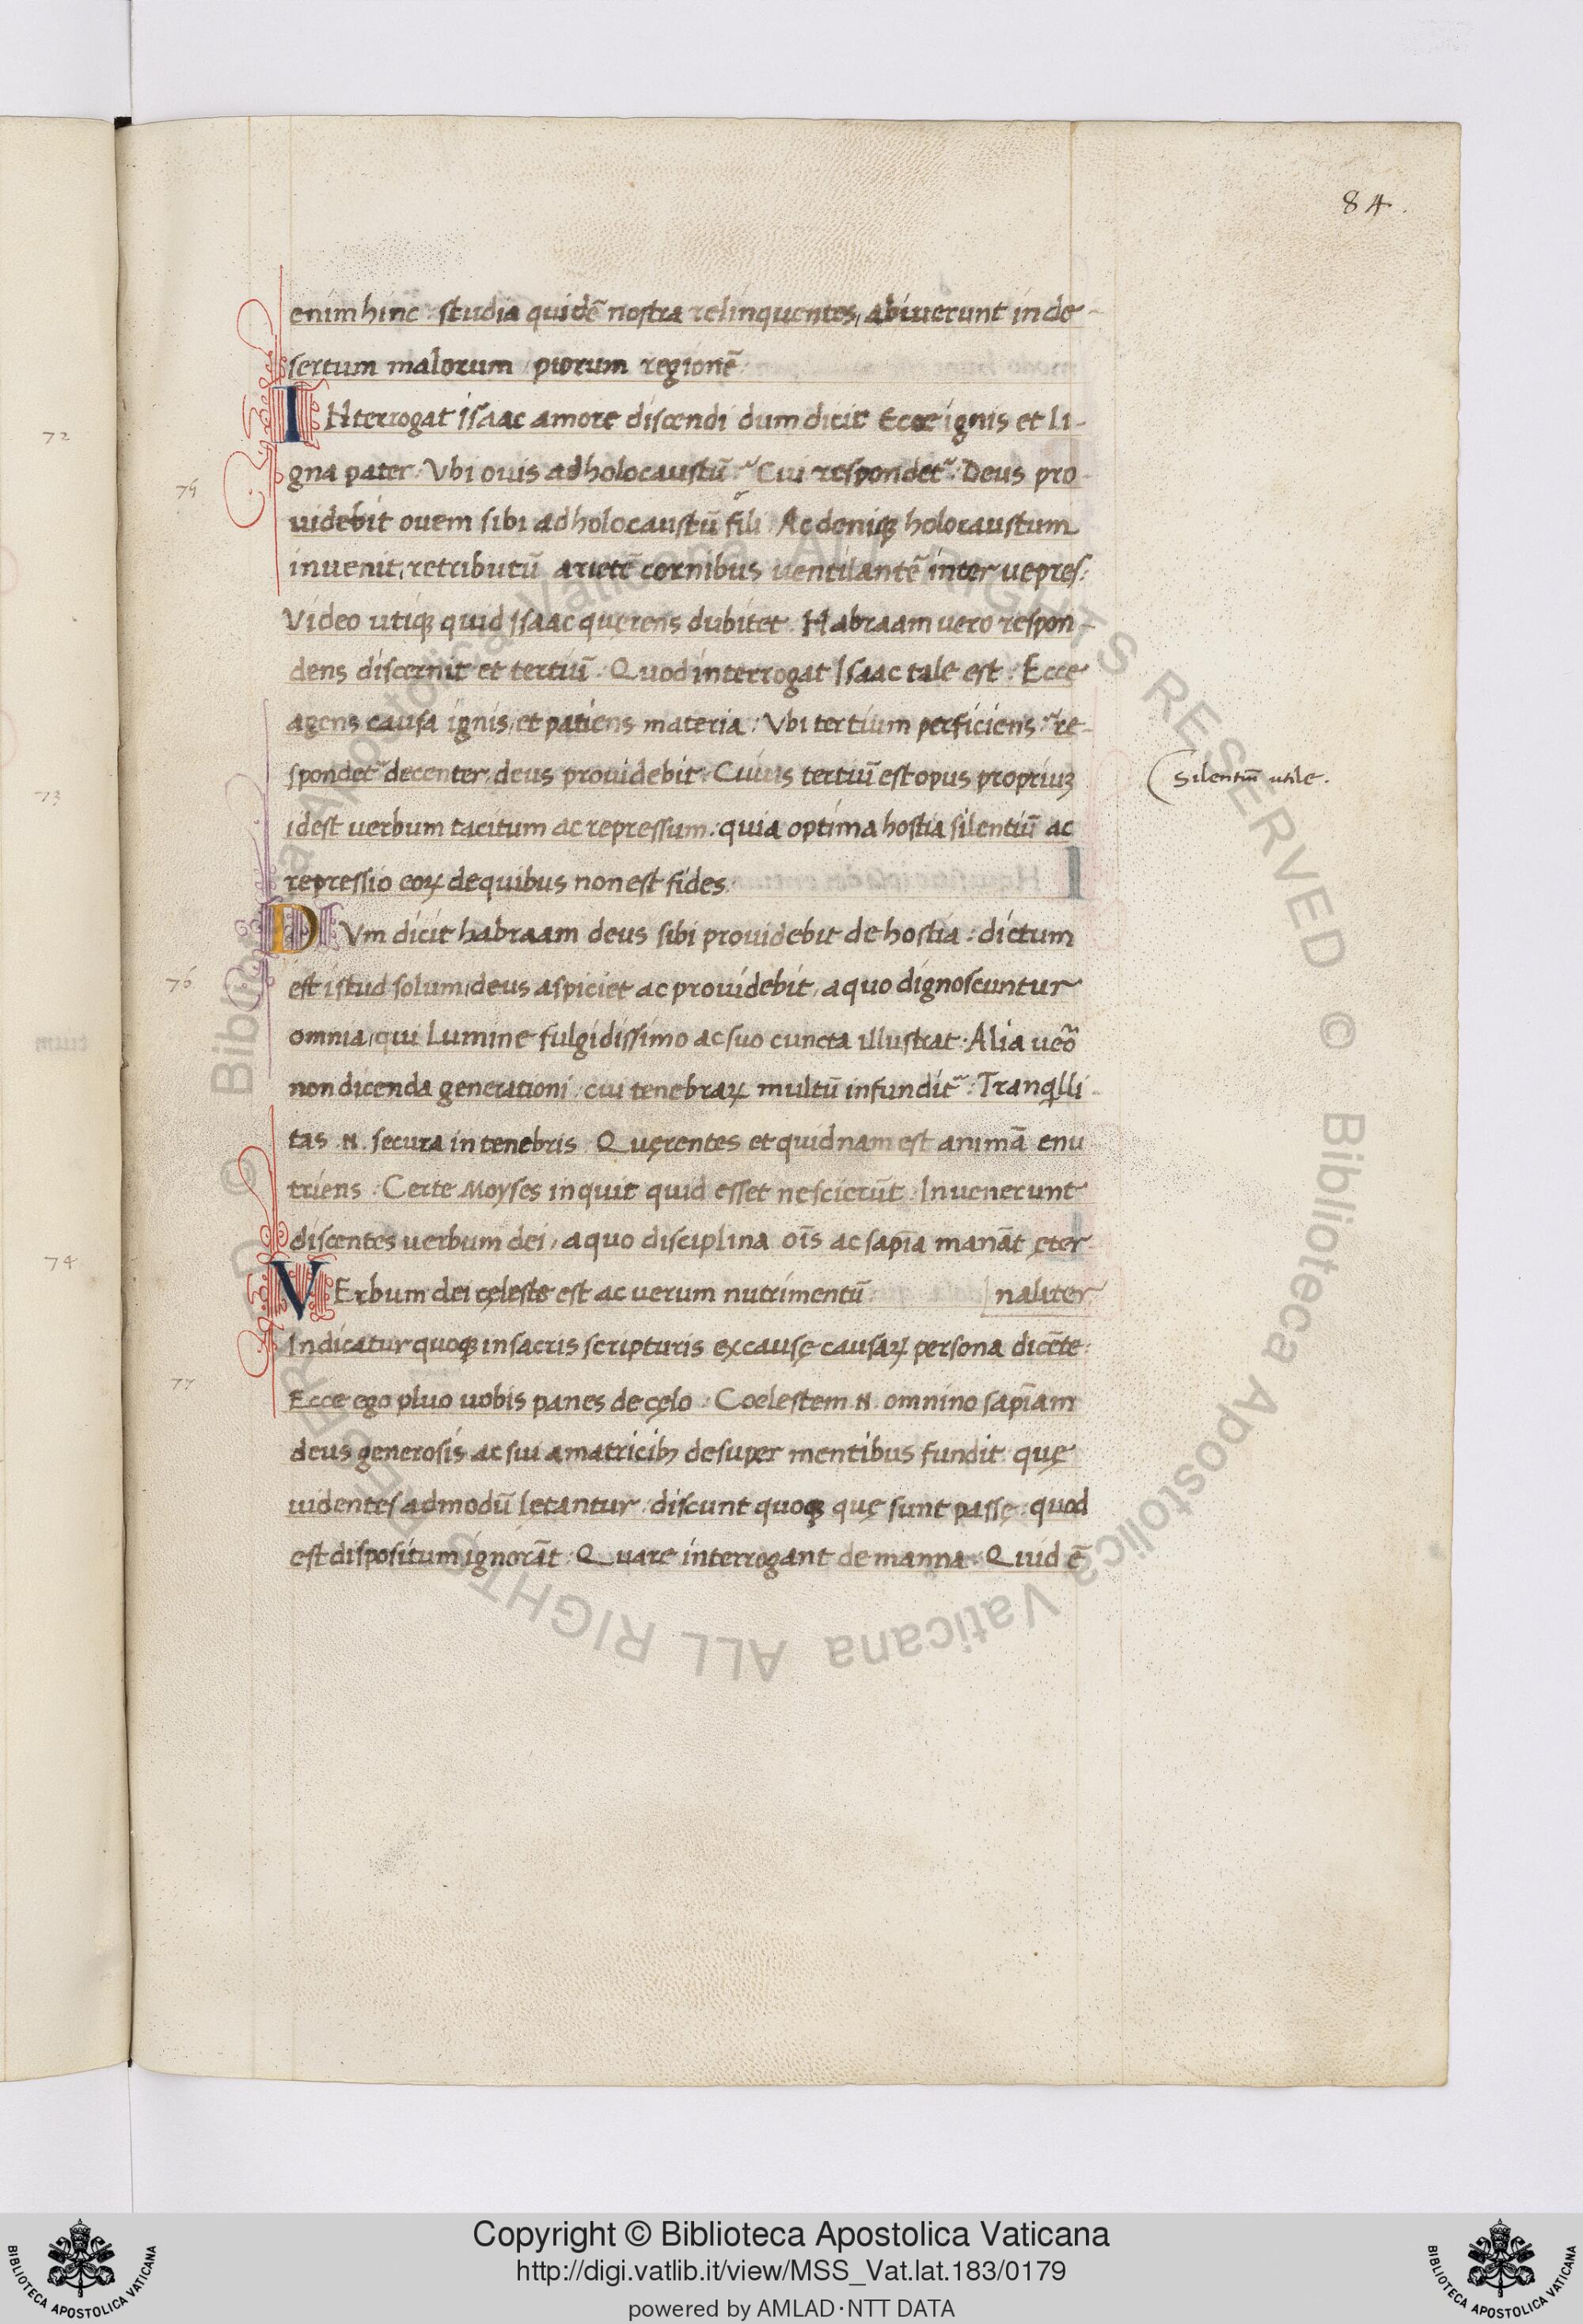 84.
enim hinc : studia quidẽ nostra relinquentes, abiuerunt in de-
sertum malorum piorum regionẽ.
INterrogat isaac amore discendi dum dicit Ecce ignis et li-
gna pater. Vbi ouis ad holocaustũ? Cui respondet᷑. Deus pro-
uidebit ouem sibi ad holocaustũ fili. Ac deniqꝫ holocaustum
inuenit, retributũ arietẽ cornibus uentilantẽ inter uepres:
Video utiqꝫ quid Isaac quęrens dubitet. Habraam uero respon-
dens discernit et tertiũ. Quod interrogat Isaac tale est. Ecce
agens causa ignis, et patiens materia. Vbi tertium perficiens? re-
spondet᷑ decenter, deus prouidebit. Cuius tertiũ est opus propriuꝫ
idest uerbum tacitum ac repressum. quia optima hostia silentiũ ac
repressio eoꝝ de quibus non est fides.
(Silentiũ utile.
DVm dicit habraam deus sibi prouidebit de hostia : dictum
est istud solum, deus aspiciet ac prouidebit, a quo dignoscuntur
omnia, qui Lumine fulgidissimo ac suo cuncta illustrat. Alia ueõ
non dicenda generationi. cui tenebraꝝ multũ infundit᷑. Tranqͥlli-
tas .N. secura in tenebris. Quęrentes et quidnam est animã enu
triens. Certe Moyses inquit quid esset nescierũt. Inuenerunt
discentes uerbum dei, a quo disciplina oĩs ac sapĩa manãt ęter
VErbum dei cęleste est ac uerum nutrimentũ. | naliter
Indicatur quoqꝫ in sacris scripturis ex causę causaꝝ persona dicẽte:
Ecce ego pluo uobis panes de cęlo. Coelestem .N. omnino sapĩam
deus generosis ac sui amatricibꝫ desuper mentibus fundit. quę
uidentes admodũ letantur. discunt quoqꝫ quę sunt passę. quod
est dispositum ignorãt. Quare interrogant de manna. Quid ẽ
72
75
73
76
74
77
tum
Copyright © Biblioteca Apostolica Vaticana
http://digi.vatlib.it/view/MSS_Vat.lat.183/0179
powered by AMLAD·NTT DATA
BIBLIOTECA APOSTOLICA VATICANA
BIBLIOTECA APOSTOLICA VATICANA
© Biblioteca Apostolica Vaticana ALL RIGHTS RESERVED © Biblioteca Apostolica Vaticana ALL RIGHTS RESERVED